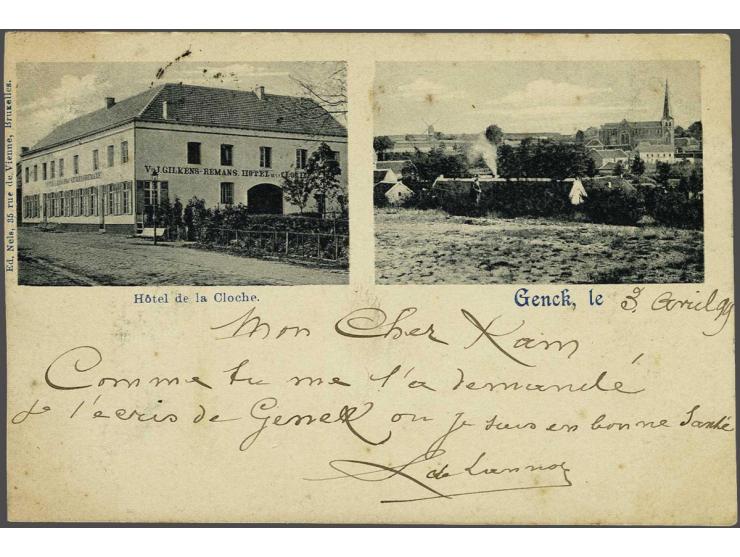 Ed. Nels, 35 rue de Vienne, Bruxelles.
Ve J. GILKENS-REMANS. HOTEL
Hôtel de la Cloche.
Genck, le 3 Avril 99
Mon Cher Kam
Comme tu me l'a demandé
je t'écris de Genck ou je suis en bonne Santé
L de Lannoy